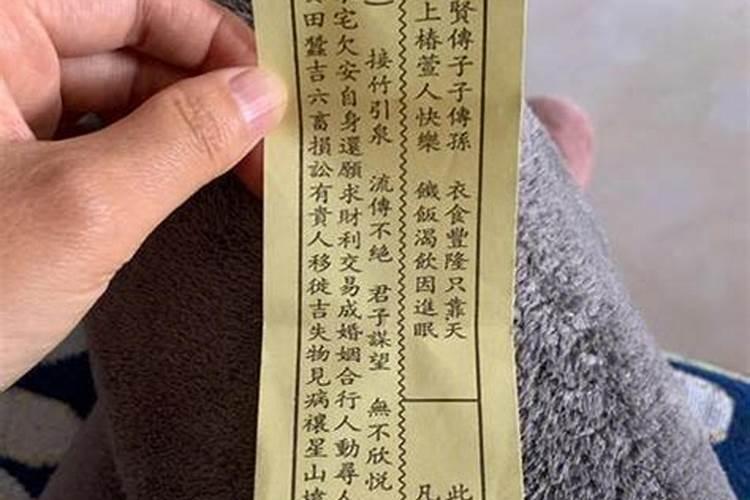 賢傳子子傳孫 衣食豐隆只靠天
上椿萱人快樂 饑飯渴飲因進眠
此
凡
接竹引泉 流傳不絕 君子謀望 無不欣悅
宅欠安自身還願求財利交易成婚姻合行人動尋人
田蠶吉六畜損訟有貴人移徙吉失物見病禳星山